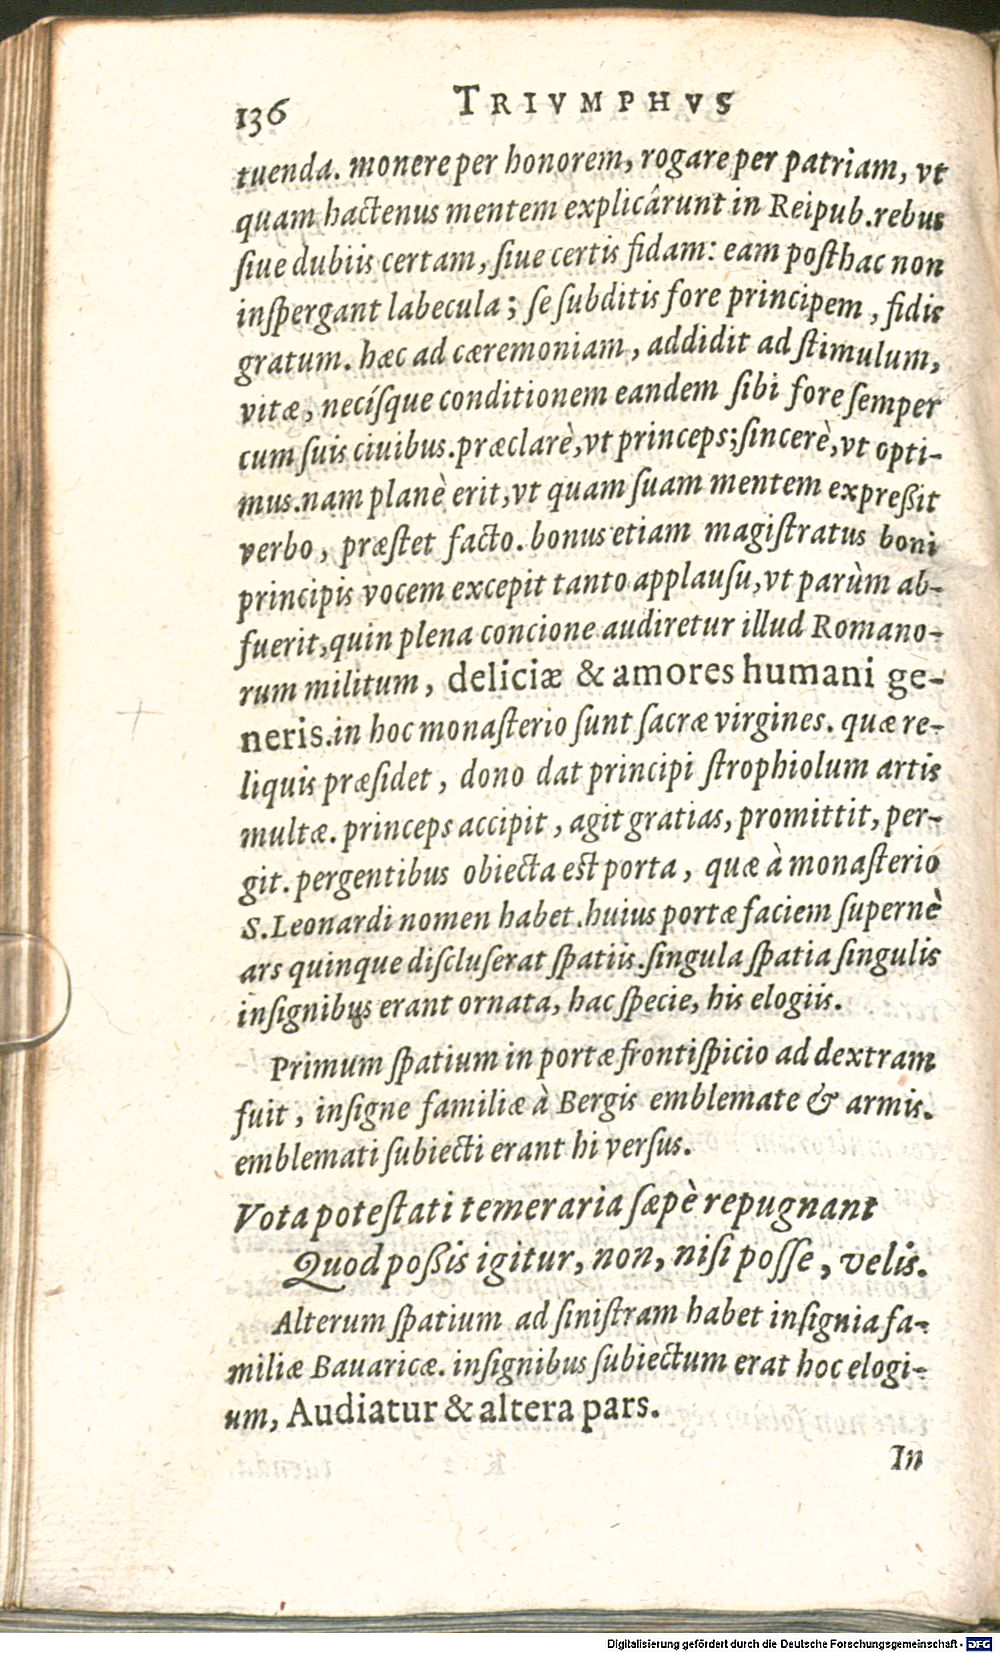 136 TRIVMPHVS
tuenda. monere per honorem, rogare per patriam, vt
quam hactenus mentem explicârunt in Reipub. rebus
ſiue dubiis certam, ſiue certis fidam: eam poſthac non
inſpergant labecula; ſe ſubditis fore principem, fidis
gratum. hæc ad cæremoniam, addidit ad ſtimulum,
vitæ, necíſque conditionem eandem ſibi fore ſemper
cum ſuis ciuibus. præclarè, vt princeps; ſincerè, vt opti-
mus. nam planè erit, vt quam ſuam mentem expreßit
verbo, præſtet facto. bonus etiam magiſtratus boni
principis vocem excepit tanto applauſu, vt parùm ab-
fuerit, quin plena concione audiretur illud Romano-
rum militum, deliciæ & amores humani ge-
neris. in hoc monaſterio ſunt ſacræ virgines. quæ re-
liquis præſidet, dono dat principi ſtrophiolum artis
multæ. princeps accipit, agit gratias, promittit, per-
git. pergentibus obiecta est porta, quæ à monaſterio
S. Leonardi nomen habet. huius portæ faciem ſupernè
ars quinque diſcluſerat ſpatiis. ſingula ſpatia ſingulis
inſignibus erant ornata, hac ſpecie, his elogiis.
Primum ſpatium in portæ frontiſpicio ad dextram
fuit, inſigne familiæ à Bergis emblemate & armis.
emblemati ſubiecti erant hi verſus.
Vota poteſtati temeraria ſæpè repugnant
Quod poßis igitur, non, niſi poſſe, velis.
Alterum ſpatium ad ſiniſtram habet inſignia fa-
miliæ Bauaricæ. inſignibus ſubiectum erat hoc elogi-
um, Audiatur & altera pars.
In
Digitalisierung gefördert durch die Deutsche Forschungsgemeinschaft - DFG